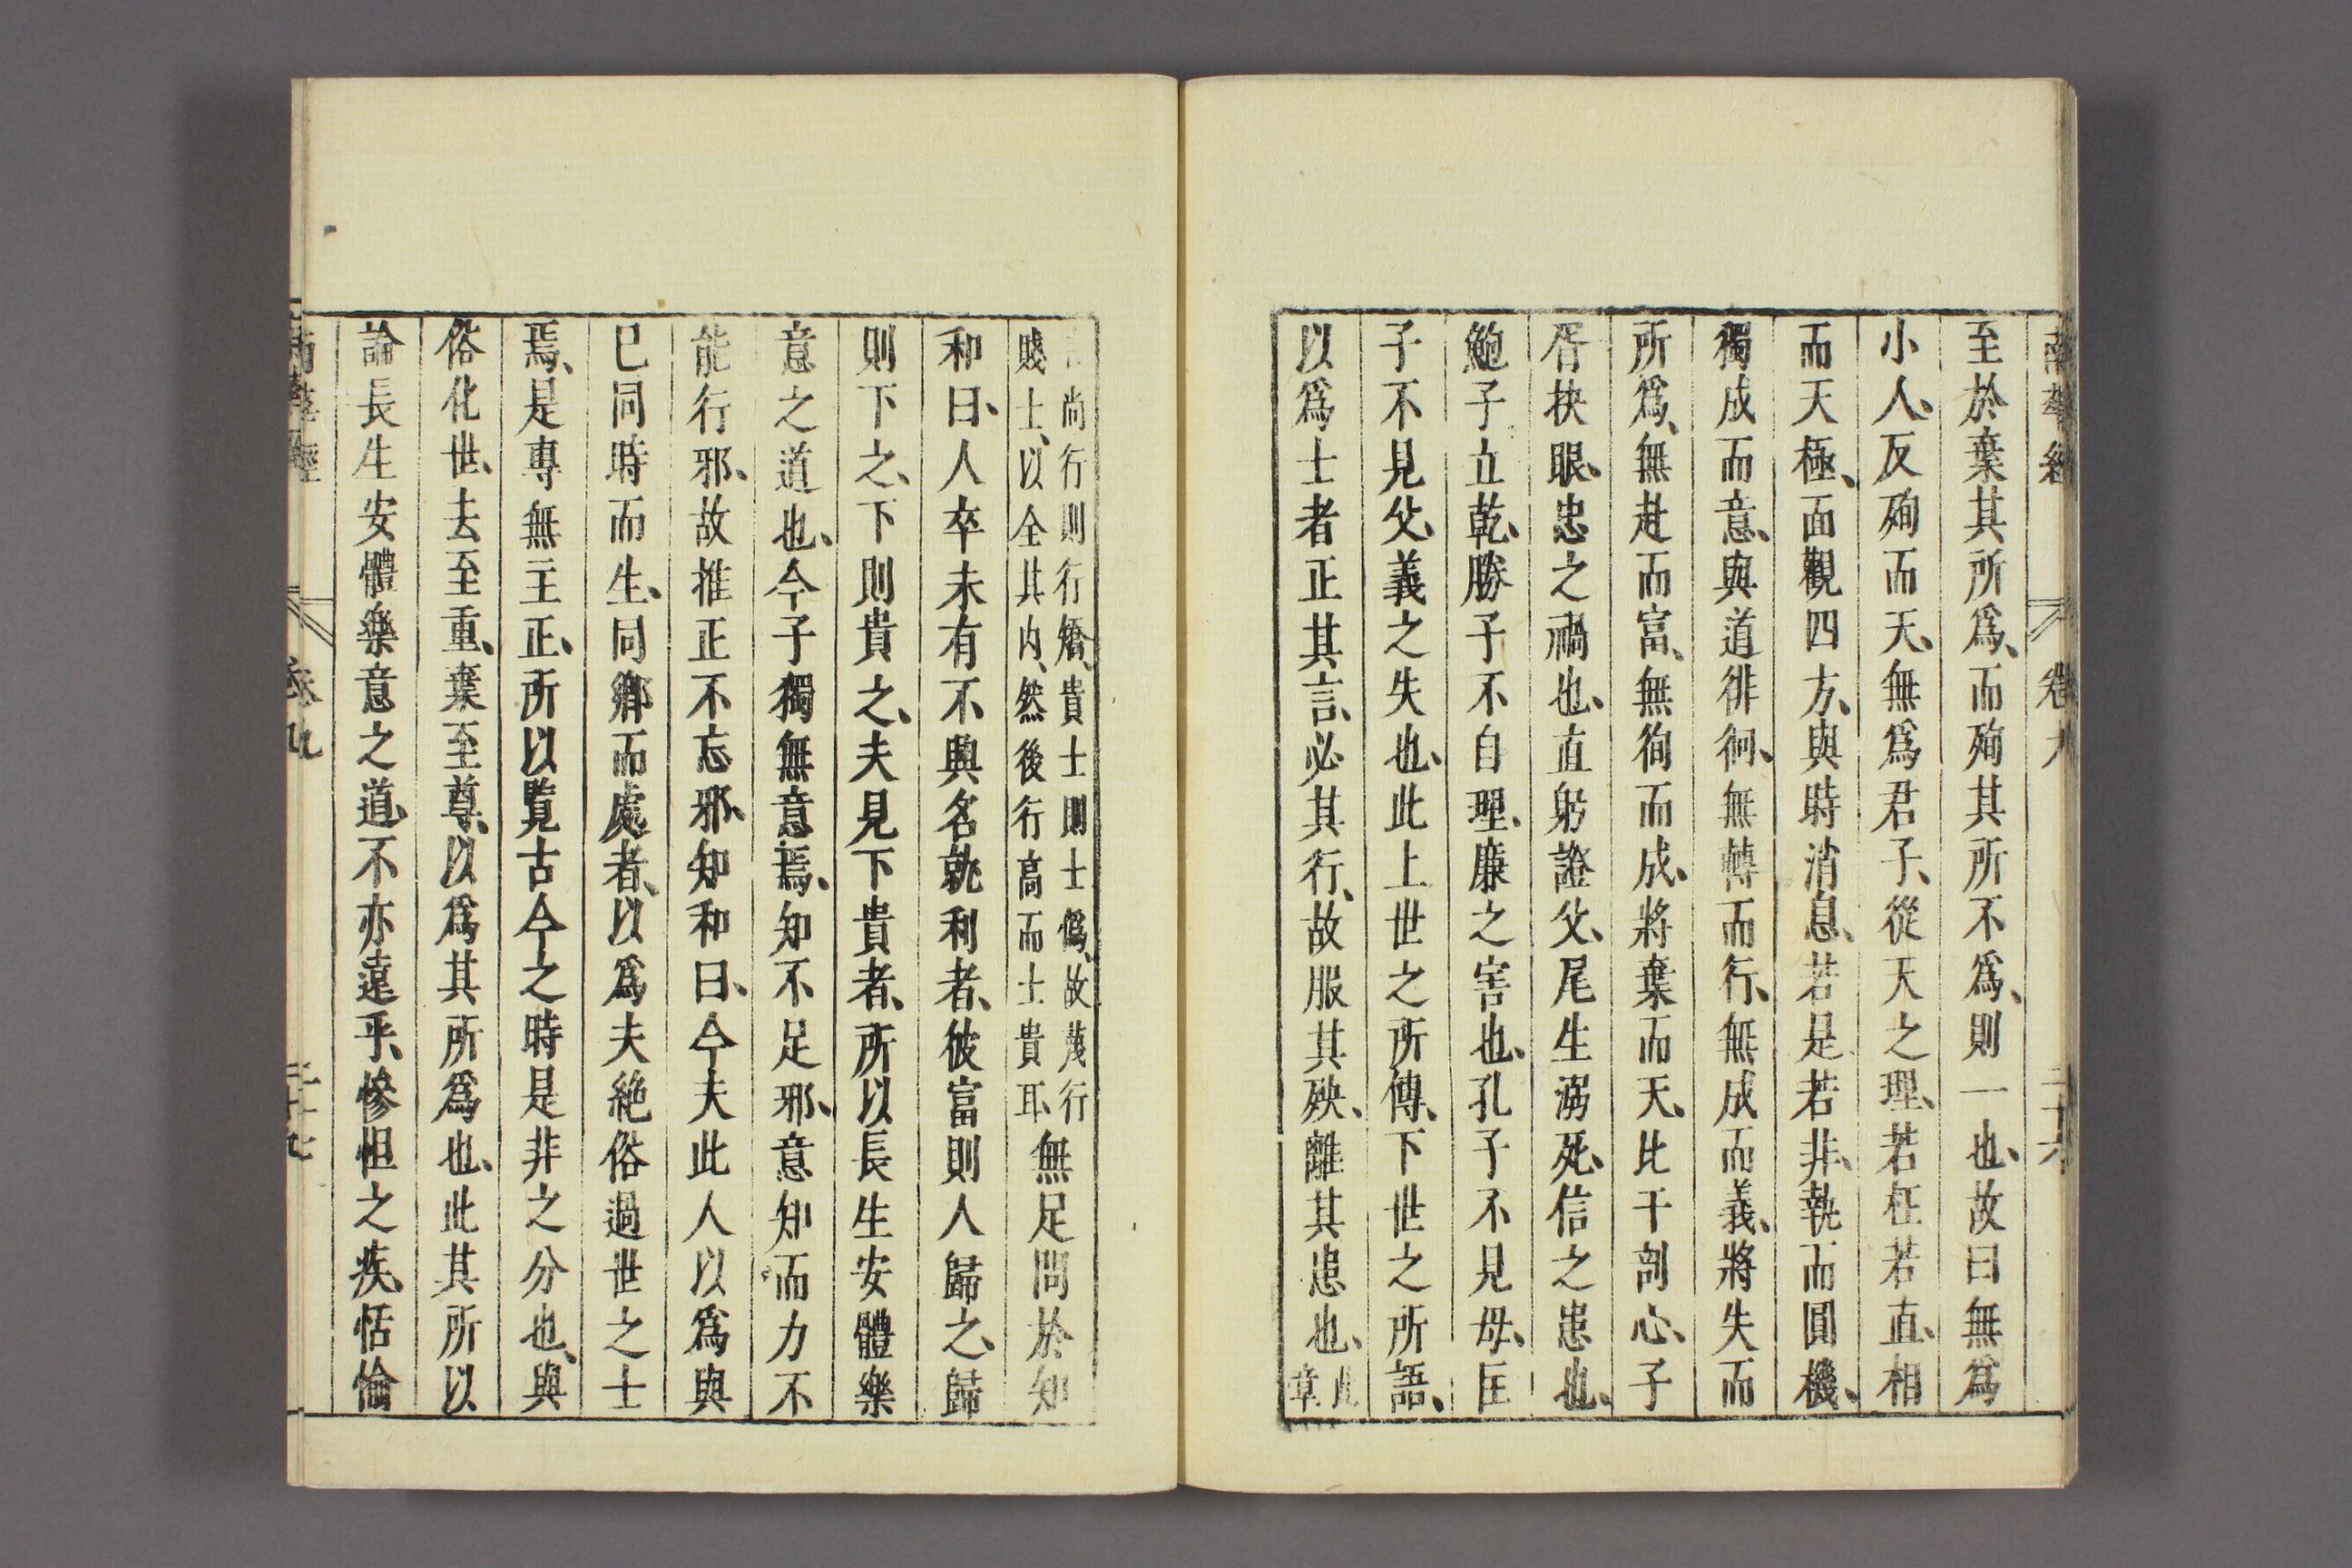 南華經 卷九 二十六
至於棄其所爲、而殉其所不爲、則一也、故曰無爲
小人、反殉而天、無爲君子、從天之理、若枉若直、相
而天極、面觀四方、與時消息、若是若非、執而圓機、
獨成而意、與道徘徊、無轉而行、無成而義、將失而
所爲、無赴而富、無徇而成、將棄而天、比干剖心、子
胥抉眼、忠之禍也、直躬證父、尾生溺死、信之患也、
鮑子立乾、勝子不自理、廉之害也、孔子不見母、匡
子不見父、義之失也、此上世之所傳、下世之所語、
以爲士者正其言、必其行、故服其殃、離其患也、此章
言尚行則行矯、貴士則士僞、故蔑行
賤士、以全其內、然後行高而士貴耳、無足問於知
和曰、人卒未有不興名就利者、彼富則人歸之、歸
則下之、下則貴之、夫見下貴者、所以長生安體樂
意之道也、今子獨無意焉、知不足邪、意知而力不
能行邪、故推正不忘邪、知和曰、今夫此人以爲與
已同時而生、同鄉而處者、以爲夫絶俗過世之士
焉、是專無主正、所以覽古今之時是非之分也、與
俗化世、去至重、棄至尊、以爲其所爲也、此其所以
論長生安體樂意之道、不亦遠乎、慘怛之疾、恬愉
南華經 卷九 二十七